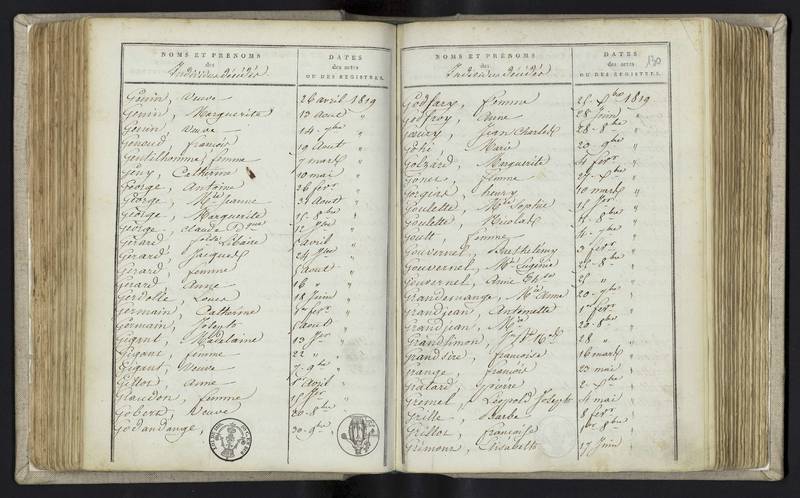 NOMS ET PRÉNOMS
des
Individus décédés
DATES
des actes
OU DES REGISTRES.
Genin, veuve 26 avril 1819
Genin, Marguerite 13 aout "
Genin, veuve 14 - 7bre "
Genaud, francois 19 Aout "
Gentilhomme, femme 7 mars "
Geny, Catherine 10 mai "
George, Antoine 26 fevr "
George, Mie Jeanne 31 Aout "
George, Marguerite 15 - 8bre "
George, claude Dque 12 Jer "
Gerard, Libaire 1 avril "
Gerard, Jacques 24 Jer "
Gerard, femme Aout "
Gerard, Anne 16 " "
Gerdolle, Louis 18 Juin "
Germain, Catherine 1er fevr "
Germain, Joseph Aout "
Gigant, Madelaine 13 Jer "
Gigant, femme 22 " "
Gigant, Veuve 7 - 9bre "
Gillot, Anne Avril "
Glaudon, femme 15 "
Gobert, Veuve 20 - 8bre "
Godandange, 30 - 9bre "
NOMS ET PRÉNOMS
des
Individus décédés
DATES
des actes
OU DES REGISTRES.
130
Godfary, femme 25 - bre 1819
Godfroy, Anne 28 Juin "
Goeury, Jean Charles 28 - 8bre "
Marie 20 - 9bre "
Golzard, Marguerite 4 fevr "
femme 27 - bre "
Gorgias, henry 10 mars "
Goulette, Mie Sophie 11 Jer "
Goulette, Nicolas 15 - 8bre "
Goutt, femme 4 - bre "
Gouvernel, Barthelemy 3 fevr "
Gouvernel, Mie Eugenie 25 - 8bre "
Gouvernel, Anne 25 "
Grandemange, Mie Anne 20 - 9bre "
Grandjean, Antoinette 1er fevr "
Grandjean, Mie 20 - 8bre "
Grandsimon, 28 "
Grandsire, francoise 16 mars "
Grange, francois 23 mai "
Gratard, pierre 2 - bre "
Gremel, Léopold Joseph 4 mai "
Grille, Barbe 8 fevr "
Grillot, francoise 8bre "
Grimont, Elisabeth 27 Juin "